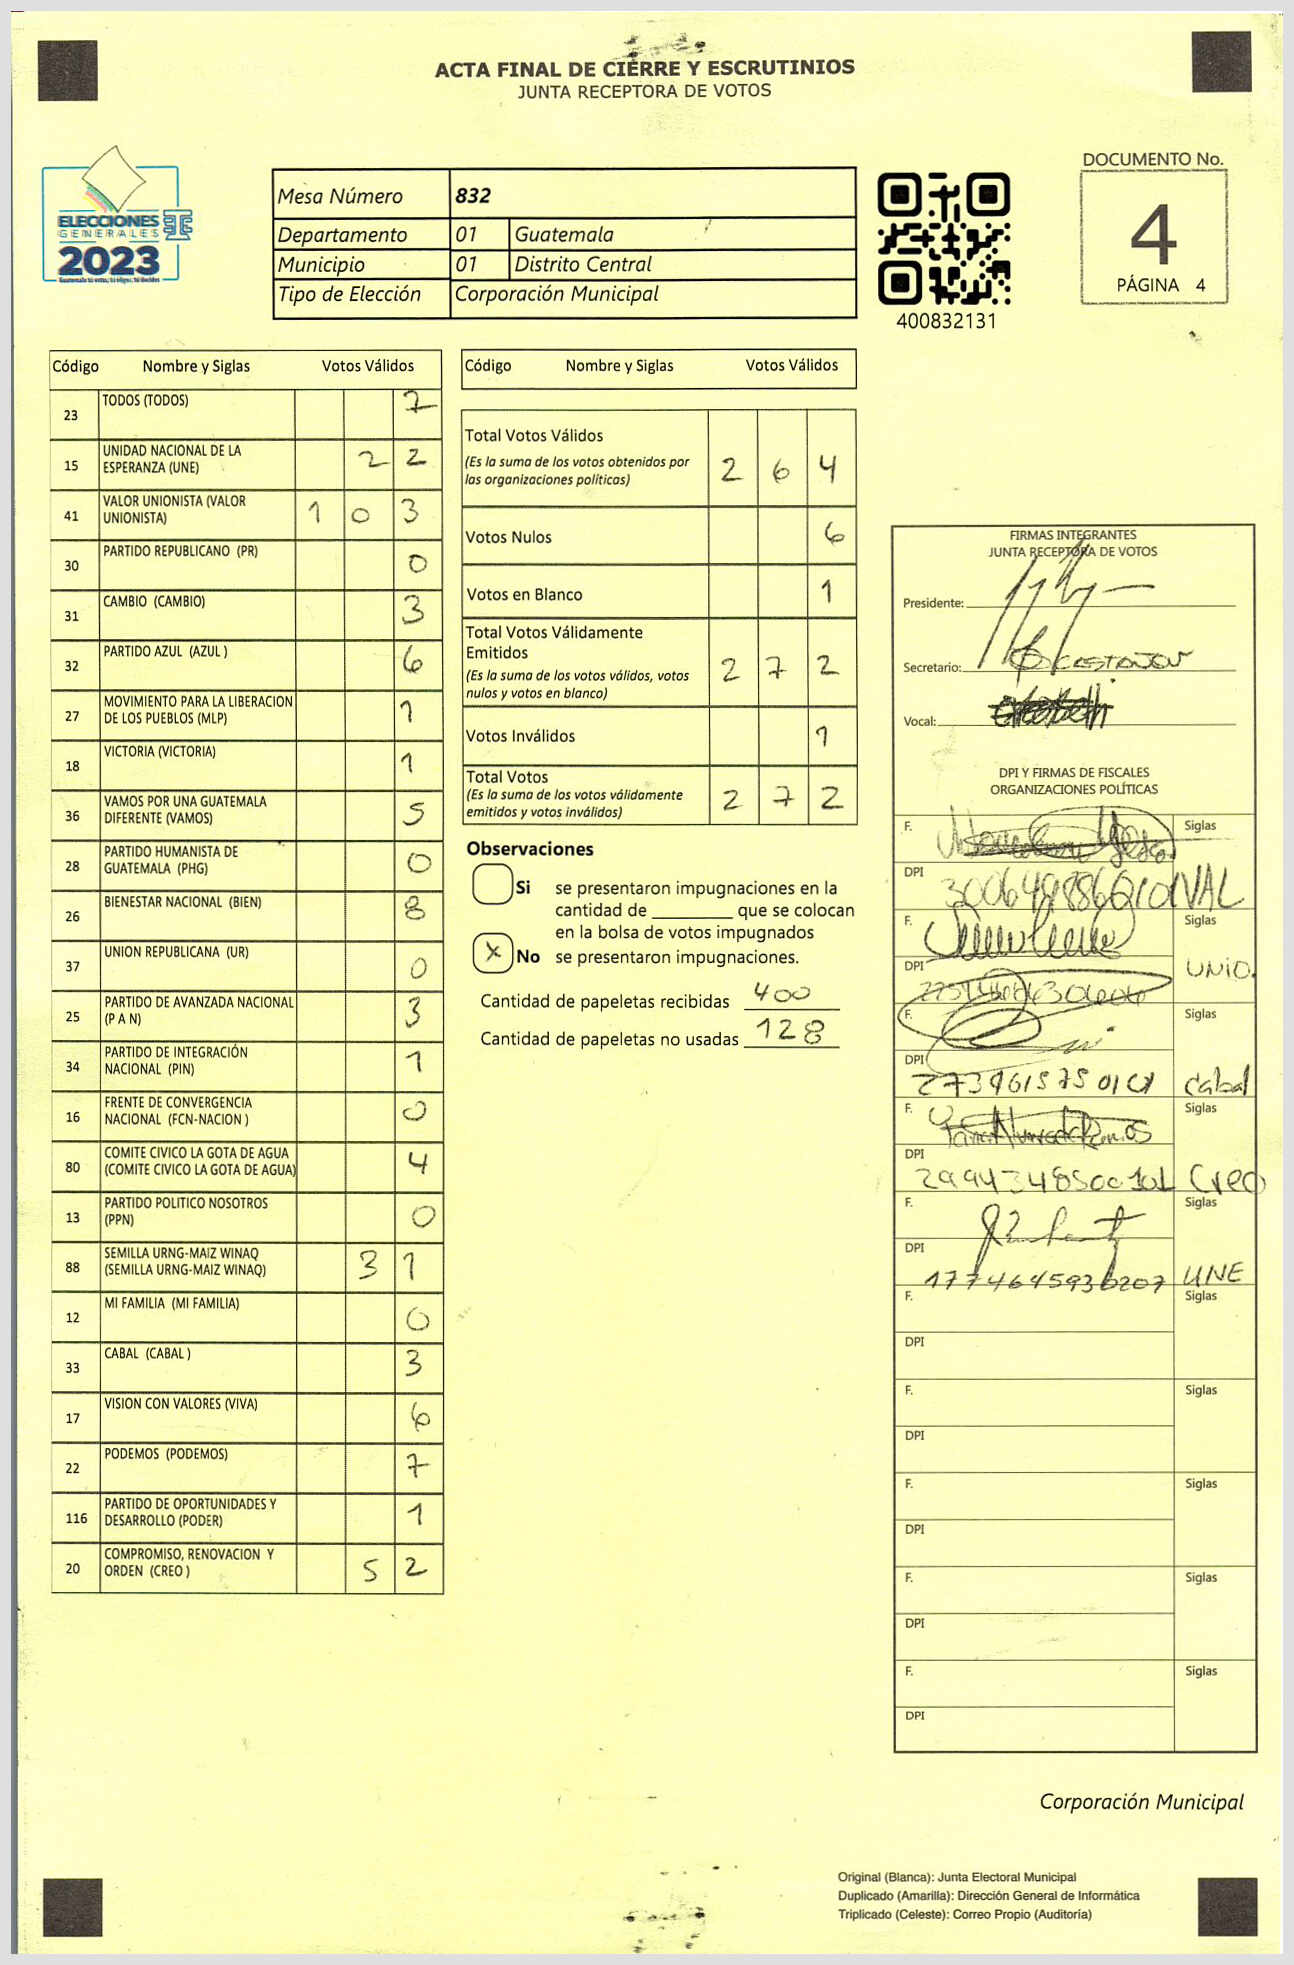 ACTA FINAL DE CIERRE Y ESCRUTINIOS
JUNTA RECEPTORA DE VOTOS
ELECCIONES
GENERALES
2023
Mesa Número 832
Departamento 01 Guatemala
Municipio 01 Distrito Central
Tipo de Elección Corporación Municipal
400832131
DOCUMENTO No.
4
PÁGINA 4
Código Nombre y Siglas Votos Válidos
23 TODOS (TODOS) 7
15 UNIDAD NACIONAL DE LA
ESPERANZA (UNE) 2 2
41 VALOR UNIONISTA (VALOR
UNIONISTA) 1 0 3
30 PARTIDO REPUBLICANO (PR) 0
31 CAMBIO (CAMBIO) 3
32 PARTIDO AZUL (AZUL ) 6
27 MOVIMIENTO PARA LA LIBERACION
DE LOS PUEBLOS (MLP) 1
18 VICTORIA (VICTORIA) 1
36 VAMOS POR UNA GUATEMALA
DIFERENTE (VAMOS) 5
28 PARTIDO HUMANISTA DE
GUATEMALA (PHG) 0
26 BIENESTAR NACIONAL (BIEN) 8
37 UNION REPUBLICANA (UR) 0
25 PARTIDO DE AVANZADA NACIONAL
(P A N) 3
34 PARTIDO DE INTEGRACIÓN
NACIONAL (PIN) 1
16 FRENTE DE CONVERGENCIA
NACIONAL (FCN-NACION ) 0
80 COMITE CIVICO LA GOTA DE AGUA
(COMITE CIVICO LA GOTA DE AGUA) 4
13 PARTIDO POLITICO NOSOTROS
(PPN) 0
88 SEMILLA URNG-MAIZ WINAQ
(SEMILLA URNG-MAIZ WINAQ) 3 1
12 MI FAMILIA (MI FAMILIA) 0
33 CABAL (CABAL ) 3
17 VISION CON VALORES (VIVA) 6
22 PODEMOS (PODEMOS) 7
116 PARTIDO DE OPORTUNIDADES Y
DESARROLLO (PODER) 1
20 COMPROMISO, RENOVACION Y
ORDEN (CREO ) 5 2
Código Nombre y Siglas Votos Válidos
Total Votos Válidos
(Es la suma de los votos obtenidos por
las organizaciones políticas) 2 6 4
Votos Nulos 6
Votos en Blanco 1
Total Votos Válidamente
Emitidos
(Es la suma de los votos válidos, votos
nulos y votos en blanco) 2 7 2
Votos Inválidos 1
Total Votos
(Es la suma de los votos válidamente
emitidos y votos inválidos) 2 7 2
Observaciones
Si se presentaron impugnaciones en la
cantidad de ________ que se colocan
en la bolsa de votos impugnados
X No se presentaron impugnaciones.
Cantidad de papeletas recibidas 400
Cantidad de papeletas no usadas 128
FIRMAS INTEGRANTES
JUNTA RECEPTORA DE VOTOS
Presidente:
Secretario:
Vocal:
DPI Y FIRMAS DE FISCALES
ORGANIZACIONES POLÍTICAS
F. Siglas
DPI VAL
F. Siglas
DPI UNIO.
F. Siglas
DPI Cabal
F. Siglas
DPI Creo
F. Siglas
DPI 1774645930207 UNE
F. Siglas
DPI
F. Siglas
DPI
F. Siglas
DPI
F. Siglas
DPI
F. Siglas
DPI
Corporación Municipal
Original (Blanca): Junta Electoral Municipal
Duplicado (Amarilla): Dirección General de Informática
Triplicado (Celeste): Correo Propio (Auditoría)